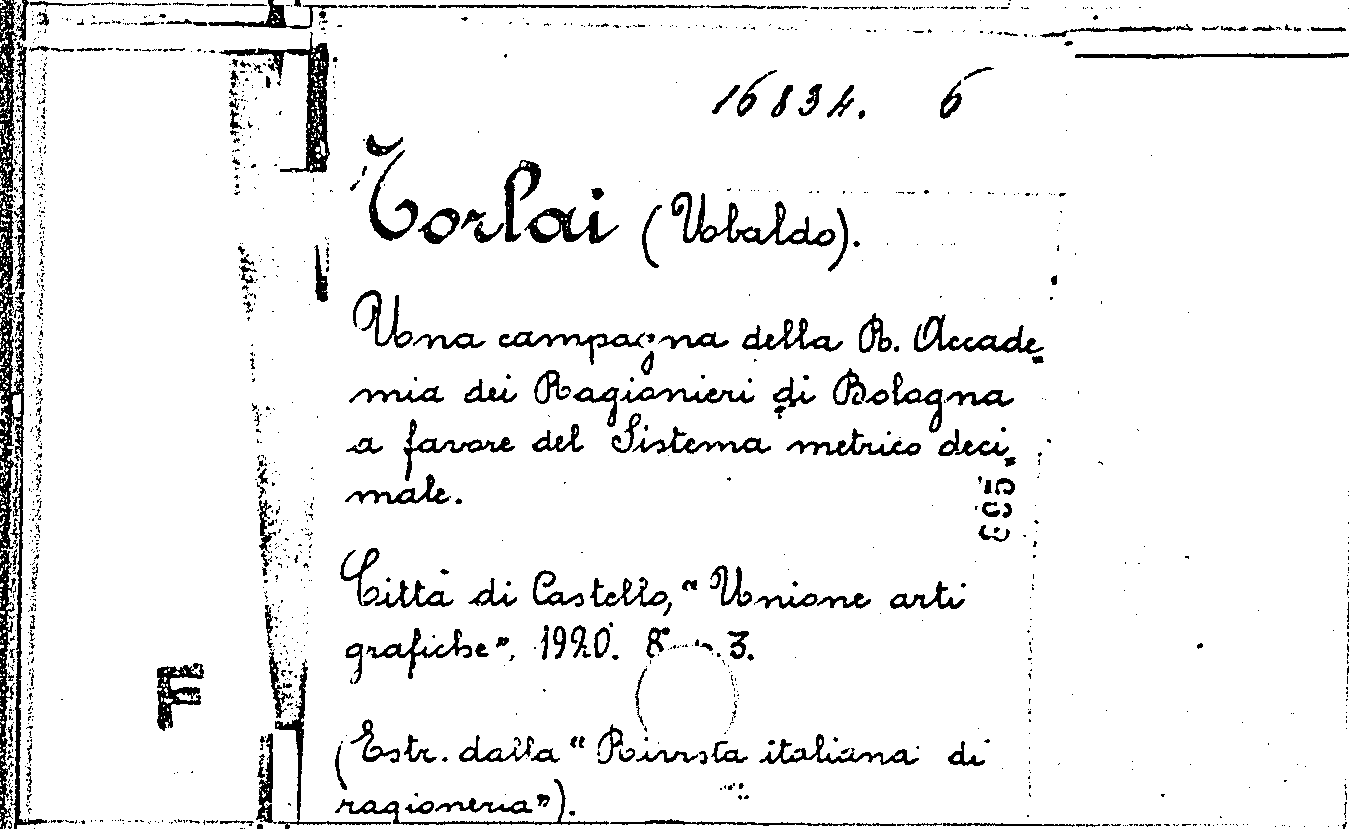 16834. 6
Torlai (Ubaldo).
Una campagna della R. Accade-
mia dei Ragionieri di Bologna
a favore del Sistema metrico deci-
male.
Città di Castello, "Unione arti
grafiche", 1920. 8° p. 3.
(Estr. dalla "Rivista italiana di
ragioneria").
F